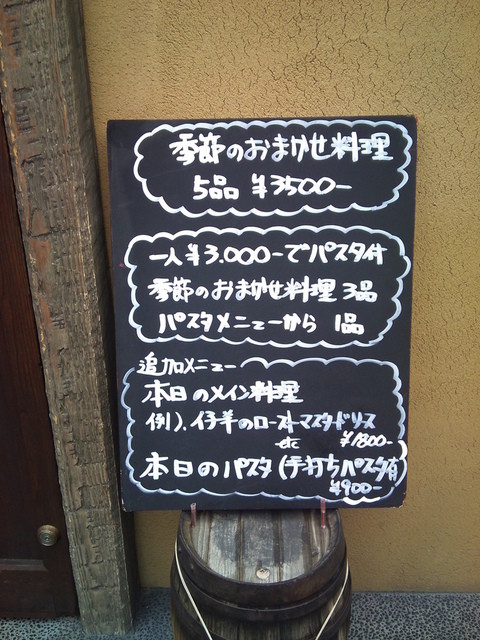 季節のおまかせ料理
5品 ¥3500-
一人¥3.000-でパスタ付
季節のおまかせ料理 3品
パスタメニューから 1品
追加メニュー
本日のメイン料理
例). 仔羊のローストマスタードソース
etc ¥1800-
本日のパスタ(手打ちパスタ有
¥900-